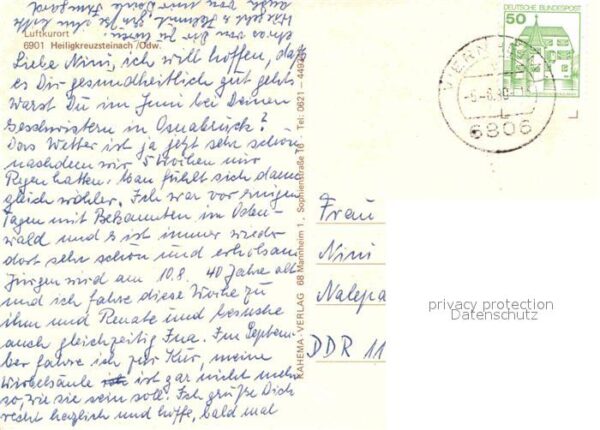 Luftkurort
6901 Heiligkreuzsteinach /Odw.
Liebe Nini, ich will hoffen, daß
es Dir gesundheitlich gut geht.
Warst Du im Juni bei Deinen
Geschwistern in Osnabrück?
Das Wetter ist ja jetzt sehr schön
nachdem wir 5 Wochen nur
Regen hatten. Man fühlt sich dann
gleich wohler. Ich war vor einigen
Tagen mit Bekannten im Oden-
wald und es ist immer wieder
dort sehr schön und erholsam
Jürgen wird am 10.8. 40 Jahre alt
und ich fahre diese Woche zu
ihm und Renate und besuche
auch gleichzeitig Ina. Im Septem-
ber fahre ich zur Kur, meine
Wirbelsäule ist gar nicht mehr
so, wie sie sein soll. Ich grüße Dich
recht herzlich und hoffe, bald mal
etwas von Dir zu hören.
KAHEMA-VERLAG 68 Mannheim 1, Sophienstraße 16 Tel: 0621-
DEUTSCHE BUNDESPOST
50
6806
Frau
Nini
Nalepa
DDR 11
privacy protection
Datenschutz